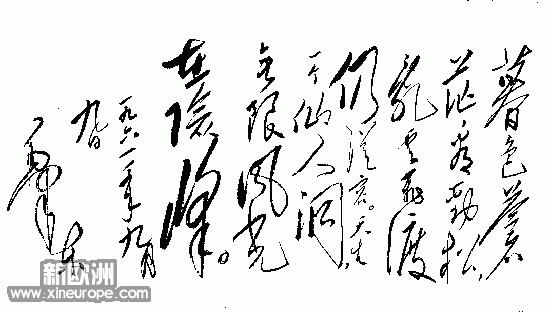 暮色蒼
茫看勁松,
乱云飛渡
仍從容。天生
一个仙人洞
无限風光
在險峰。
一九六一年九月
九日
毛澤东
新欧洲
www.xineurope.com